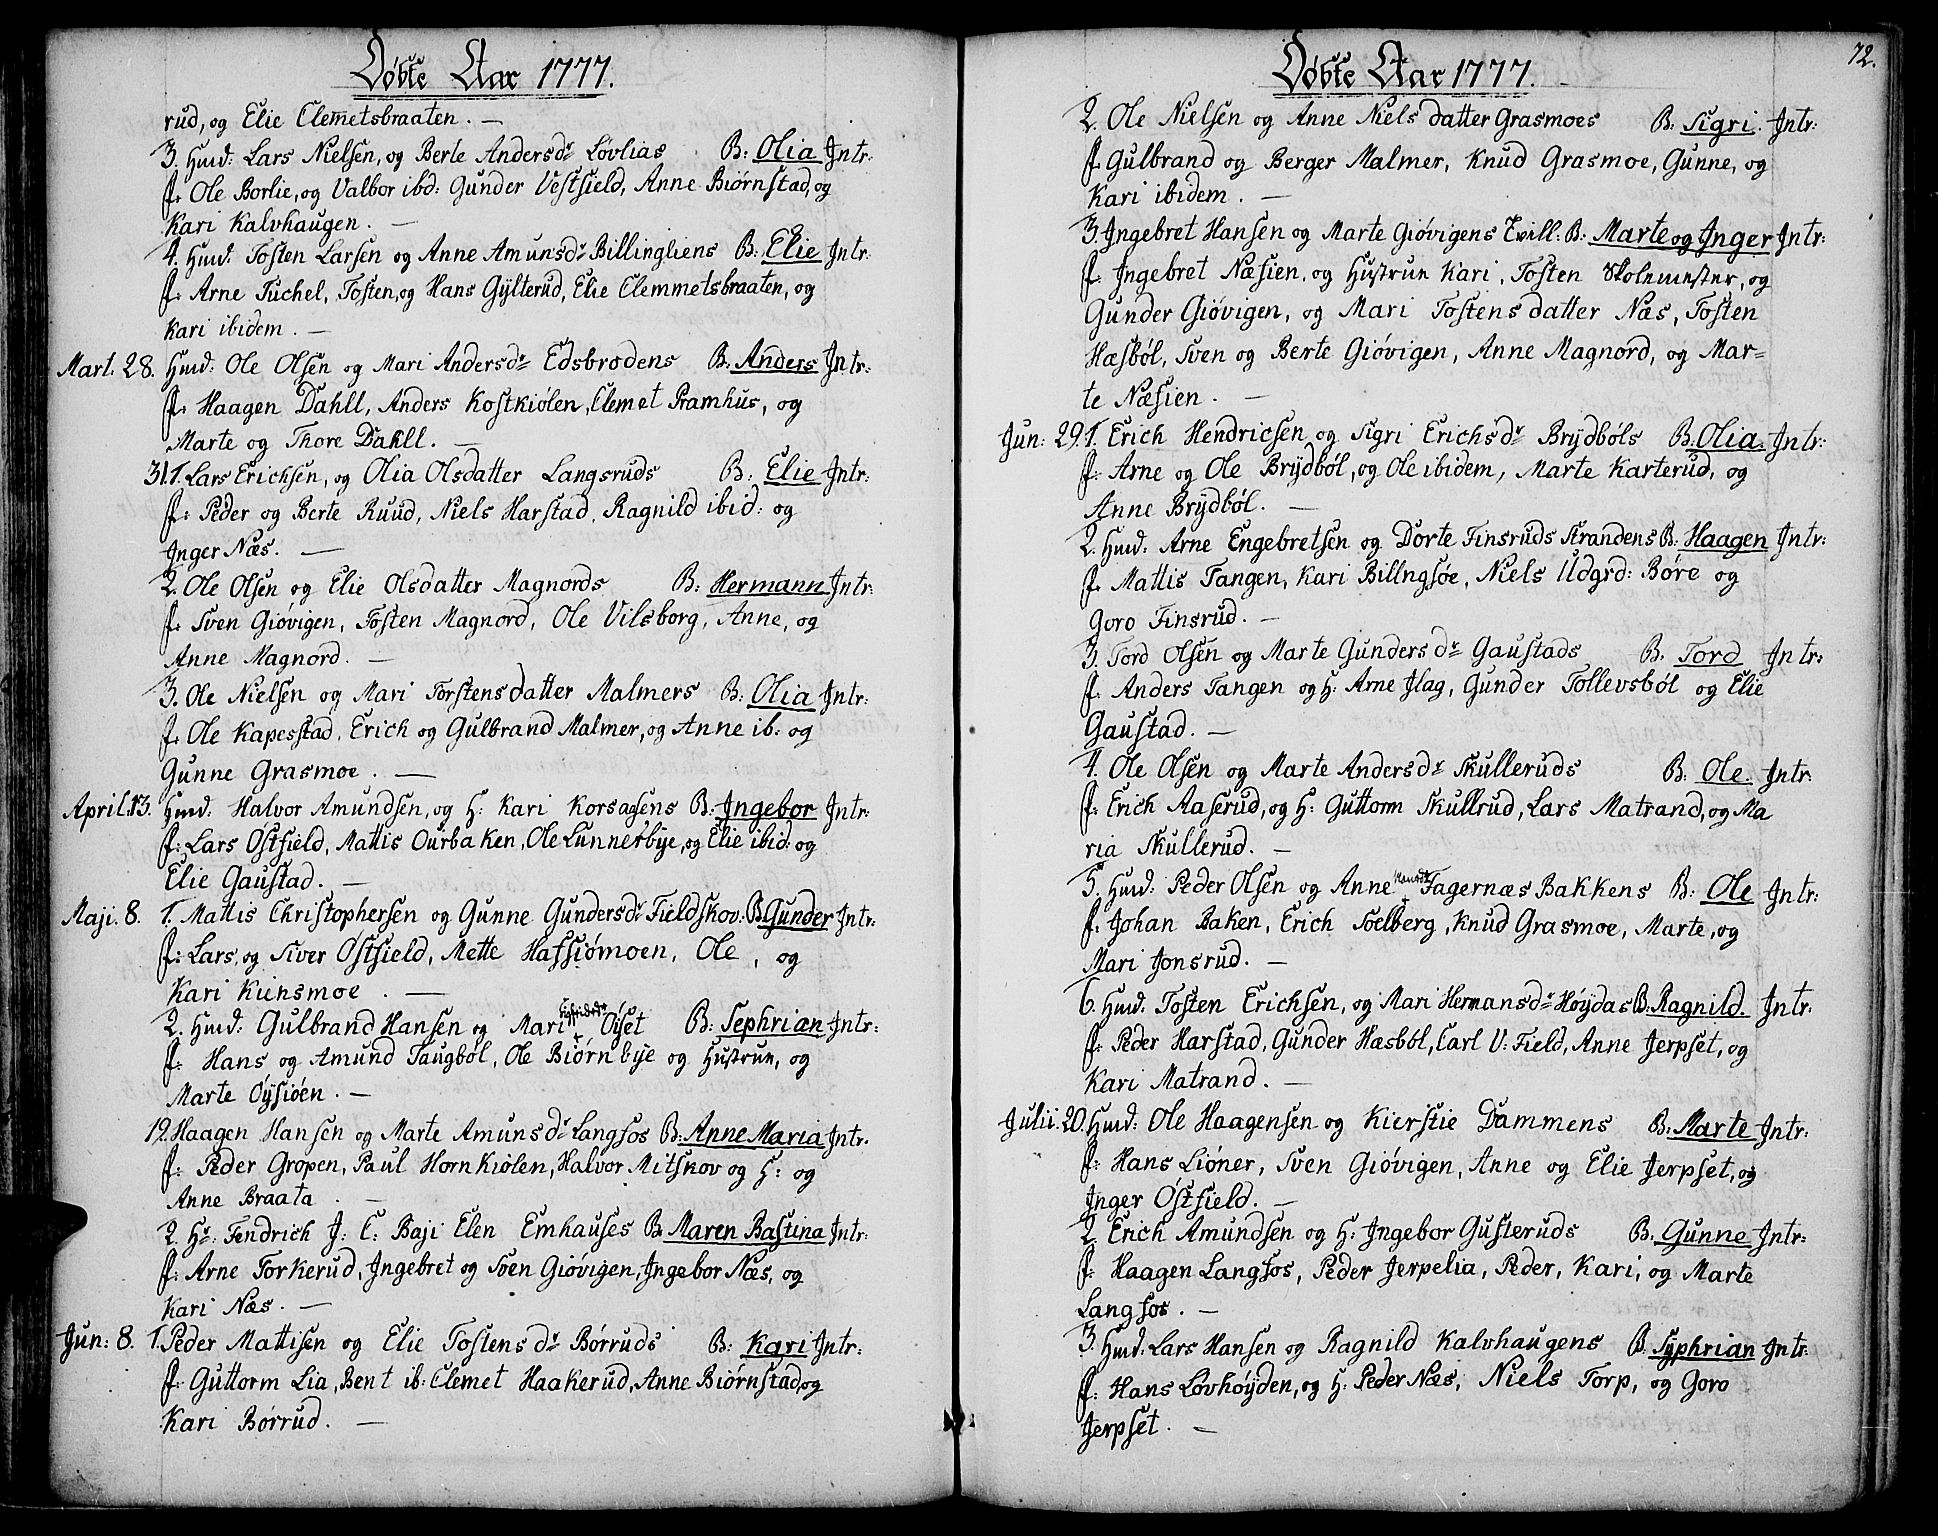 Døbte Aar 1777.
rud, og Elie Clemetsbraaten. —
3. Hmd: Lars Nielsen, og Berte Andersdr Løvlias B: Olia Intr:
f: Ole Borlie, og Valbor ibd: Gunder Vestfield, Anne Biørnstad, og
Kari Kalvhaugen. —
4. Hmd: Tosten Larsen og Anne Amunsdr Billingliens B: Elie Intr:
f: Arne Tuchel, Tosten, og Hans Gylterud, Elie Clemmetsbraaten, og
Kari ibidem. —
Mart. 28. Hmd: Ole Olsen og Mari Andersdr Edsbrodens B: Anders Intr:
f: Haagen Dahll, Anders Kostkiølen, Clemet Pramhus, og
Marte og Thore Dahll. —
31. 1. Lars Erichsen, og Olia Olsdatter Langsruds B: Elie Intr:
f: Peder og Berte Ruud, Niels Harstad, Ragnild ibid: og
Inger Næs. —
2. Ole Olsen og Elie Olsdatter Magnords B: Hermann Intr:
f: Sven Giøvigen, Tosten Magnord, Ole Vilsborg, Anne, og
Anne Magnord. —
3. Ole Nielsen og Mari Torstensdatter Malmers B: Olia Intr:
f: Ole Kapesstad, Erich og Gulbrand Malmer, og Anne ib: og
Gunne Grasmoe. —
April. 13. Hmd: Halvor Amundsen, og H: Kari Korsaasens B: Ingebor Intr:
f: Lars Østfield, Mattis Ourbaken, Ole Lunnerbye, og Elie ibid: og
Elie Gaustad. —
Maji. 8. 1. Mattis Christophersen og Gunne Gundersdr Fieldskov: B: Gunder Intr:
f: Lars, og Siver Østfield, Mette Hafsiømoen, Ole, og
Kari Kiensmoe. —
2. Hmd: Gulbrand Hansen og Mari Øiset B: Sephrian Intr:
f: Hans og Amund Taugbøl, Ole Biørnbye og Hustrue, og
Marte Øysiøen. —
19. Haagen Hansen og Marte Amunsdr Langsos B: Anne Maria Intr.
f: Peder Gropen, Paul Hornkiølen, Halvor Mitskov og H: og
Anne Braata. —
2. Hr: Fendrich J: C: Baji Elen Emhauses B: Maren Bastina Intr:
f: Arne Torkerud, Ingebret og Sven Giøvigen, Ingebor Næs, og
Kari Næs. —
Jun: 8. 1. Peder Mattisen og Elie Tostensdr Børruds B: Kari Intr:
f: Guttorm Lia, Bent ib: Clemet Haakerud, Anne Biørnstad, og
Kari Børrud. —
72.
Døbte Aar 1777.
2. Ole Nielsen og Anne Niels datter Grasmoes B: Sigri. Intr:
f: Gulbrand og Berger Malmer, Knud Grasmoe, Gunne, og
Kari ibidem. —
3. Ingebret Hansen og Marte Giøvigens Tvill: B: Marte og Inger Intr:
f: Ingebret Næsien, og Hustrue Kari, Tosten Skolemester, og
Gunder Giøvigen, og Mari Tostensdatter Næs, Tosten
Hæsbøl, Sven og Berte Giøvigen, Anne Magnord, og Mar=
te Næsien. —
Jun: 29. 1. Erich Hendricsen og Sigri Erichsdr Brydbøls B: Olia. Intr:
f: Arne og Ole Brydbøl, og Ole ibidem, Marte Karterud, og
Anne Brydbøl. —
2. Hmd: Arne Engebretsen og Dorte Finsruds Strandens B: Haagen Intr:
f: Mattis Tangen, Kari Billngsøe, Niels Udgrd: Børe og
Goro Finsrud. —
3. Tord Olsen og Marte Gundersdr Gaustads B: Tord Intr:
f: Anders Tangen og H: Arne Ilag, Gunder Tollevsbøl og Elie
Gaustad. —
4. Ole Olsen og Marte Andersdr Skulleruds B: Ole. Intr
f: Erich Aaserud, og H: Guttorm Skullrud, Lars Matrand, og Ma
ria Skullerud. —
5. Hmd: Peder Olsen og Anne Fagernæs Bakkens B: Ole Intr:
f: Johan Baken, Erich Soelberg, Knud Grasmoe, Marte, og
Mari Jonsrud. —
6. Hmd: Tosten Erichsen, og Mari Hermansdr Høydas B: Ragnild. Intr:
f: Peder Harstad, Gunder Hæsbøl, Carl V: Field, Anne Jerpset, og
Kari Matrand. —
Julii. 20. Hmd: Ole Haagensen og Kierstie Dammens B: Marte Intr:
f: Hans Liøner, Sven Giøvigen, Anne og Elie Jerpset, og
Inger Østfield. —
2. Erich Amundsen og H: Ingebor Gusteruds B: Gunne Intr:
f: Haagen Langsos, Peder Jerpelia, Peder, Kari, og Marte
Langsos. —
3. Hmd: Lars Hansen og Ragnild Kalvhaugens B: Syphrian Intr:
f: Hans Løvhøyden, og H: Peder Næs, Niels Torp, og Goro
Jerpset. —